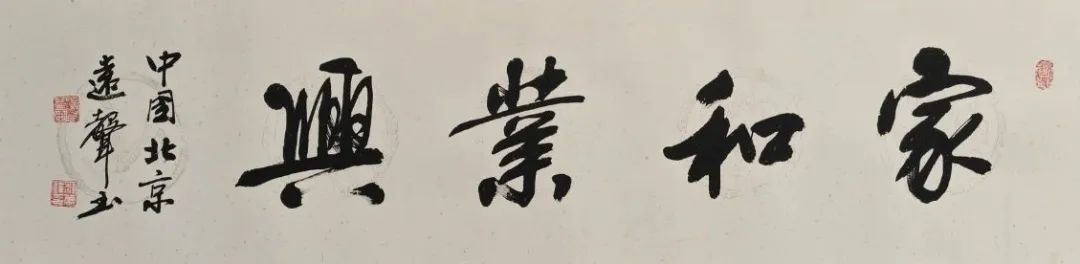 家和業興
中国北京
遠聲书